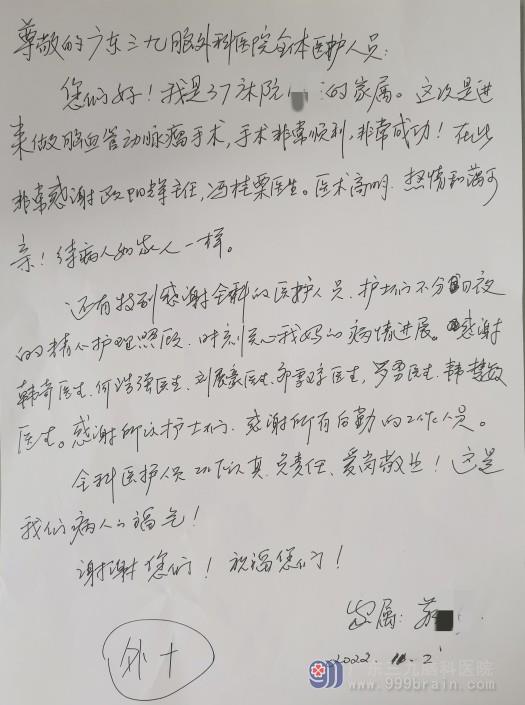 尊敬的广东三九脑外科医院全体医护人员:
您们好!我是37床院 的家属。这次是进
来做脑血管动脉瘤手术,手术非常顺利,非常成功!在此
非常感谢欧阳辉主任,冯桂栗医生。医术高明.热情和蔼可
亲!待病人如家人一样。
还有特别感谢全科的医护人员.护士们不分日夜
的精心护理照顾.时刻关心我妈的病情进展。感谢
韩奇医生.何浩强医生.刘展豪医生. 医生,罗勇医生.韩慧敏
医生。感谢所以护士们.感谢所有后勤的工作人员。
全科医护人员工作认真.负责任、爱岗敬业!这是
我们病人的福气!
谢谢您们!祝福您们!
家属:
2022.11.21
外十
广东三九脑科医院
www.999brain.com